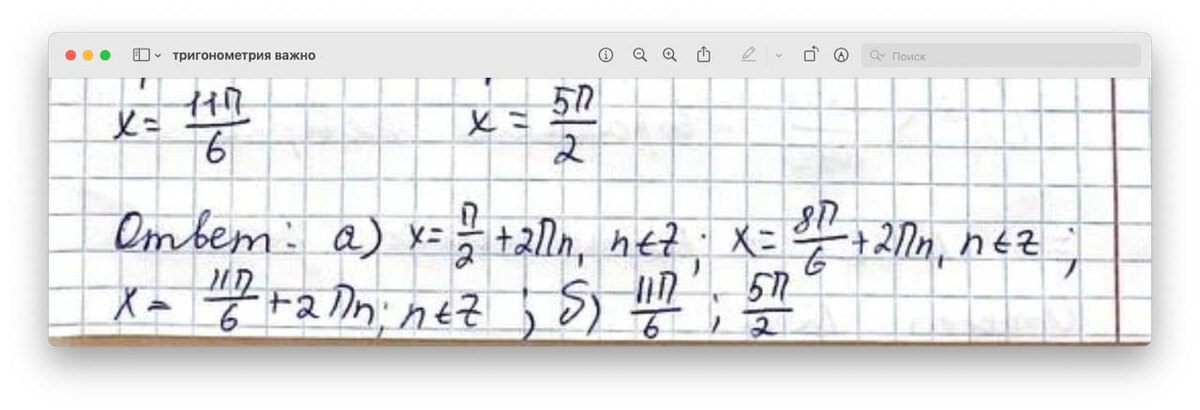 тригонометрия важно
Поиск
x = 11П/6 x = 5П/2
Ответ: а) x = П/2 + 2Пn, n ∈ Z; x = 8П/6 + 2Пn, n ∈ Z;
x = 11П/6 + 2Пn; n ∈ Z; б) 11П/6; 5П/2